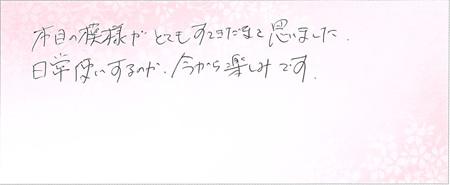 木目の模様がとてもすてきだなと思いました.
日常使いするのが、今から楽しみです.